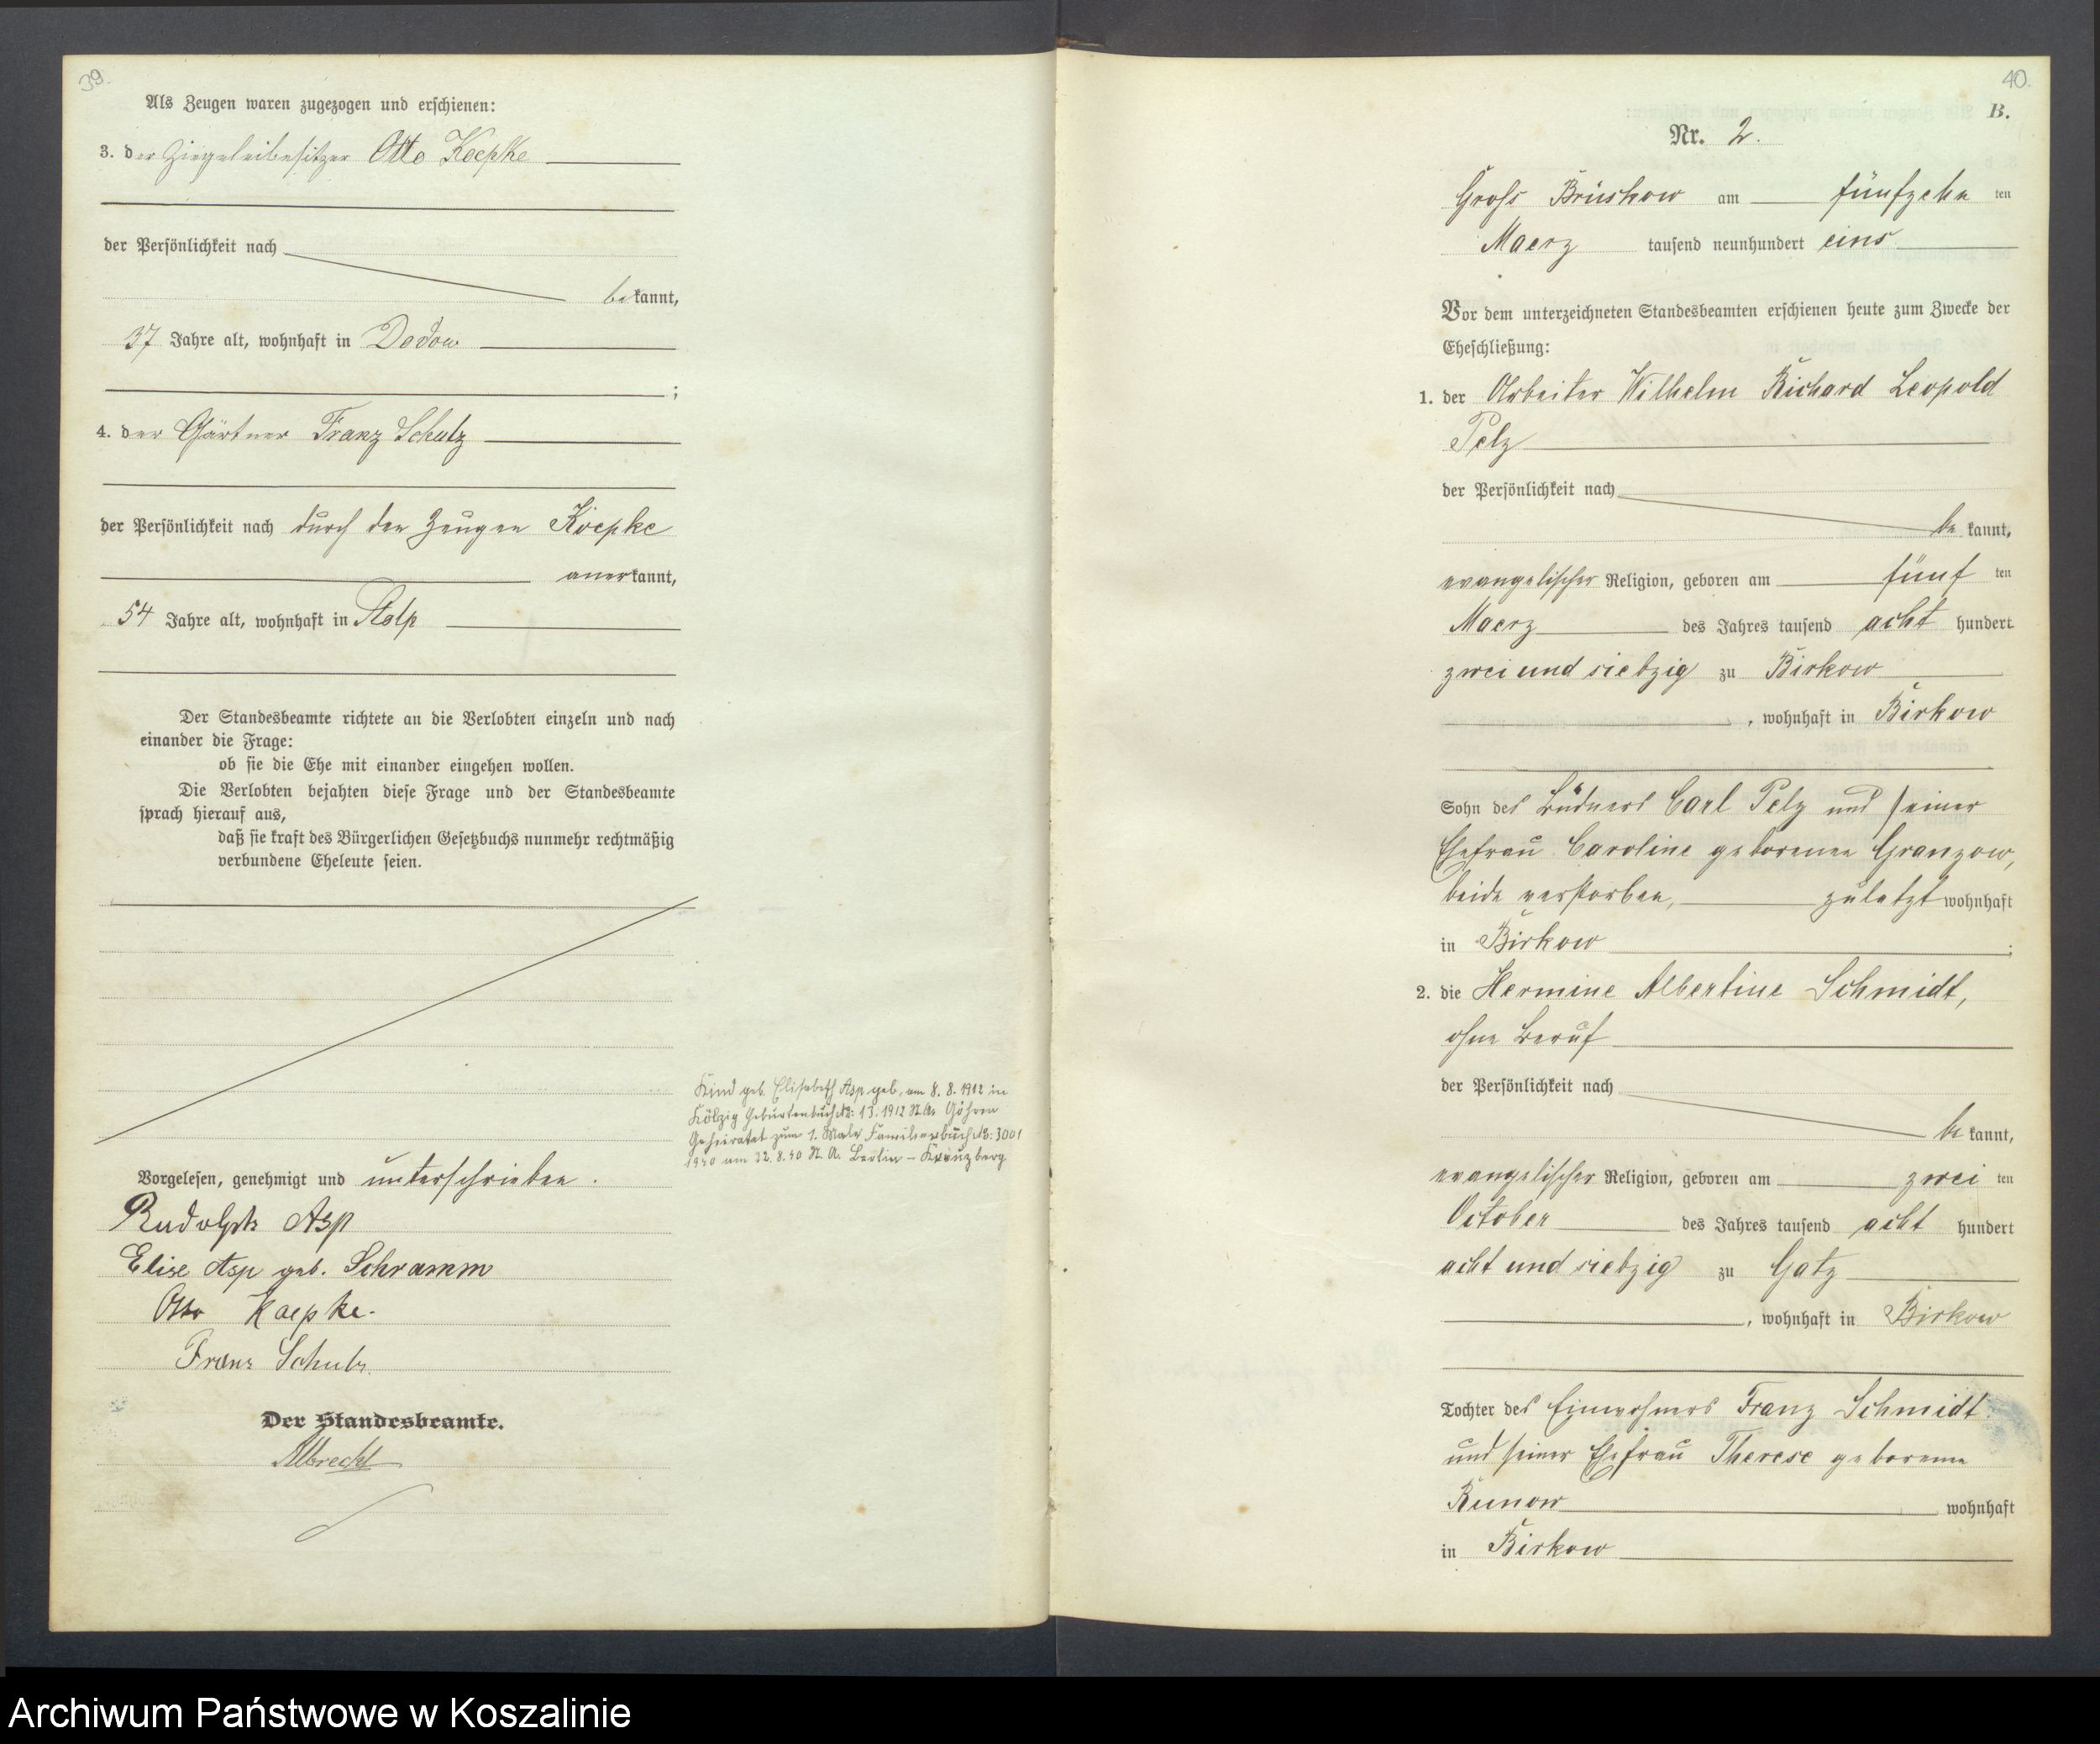 39.
Als Zeugen waren zugezogen und erschienen:
3. der Ziegeleibesitzer Otto Koepke
der Persönlichkeit nach
bekannt,
37 Jahre alt, wohnhaft in Dodow
;
4. der Gärtner Franz Schulz
der Persönlichkeit nach durch den Zeugen Köepke
anerkannt,
54 Jahre alt, wohnhaft in Stolp
Der Standesbeamte richtete an die Verlobten einzeln und nach
einander die Frage:
ob sie die Ehe mit einander eingehen wollen.
Die Verlobten bejahten diese Frage und der Standesbeamte
sprach hierauf aus,
daß sie kraft des Bürgerlichen Gesetzbuchs nunmehr rechtmäßig
verbundene Eheleute seien.
Kind geb. Elisabeth Asp geb. am 8. 8. 1912 in
Kölzig Geburtenbuch N: 13. 1912 St. A. Göhren
Geheiratet zum 1. Male Familienbuch N: 3001
1940 am 8.40 St. A. Berlin – Kreuzberg
Vorgelesen, genehmigt und unterschrieben.
Rudolph Asp
Elise Asp geb. Schramm
Otto Koepke.
Franz Schulz.
Der Standesbeamte.
Albrecht
40.
B.
Nr. 2.
Gross Brüskow am fünfzehn ten
Maerz tausend neunhundert eins
Vor dem unterzeichneten Standesbeamten erschienen heute zum Zwecke der
Eheschließung:
1. der Arbeiter Wilhelm Richard Leopold
Pelz
der Persönlichkeit nach
be kannt,
evangelischer Religion, geboren am fünf ten
Maerz des Jahres tausend acht hundert
zwei und siebzig zu Birkow
, wohnhaft in Birkow
Sohn des Büdners Carl Pelz und seiner
Ehefrau Caroline geborenen Granzow,
beide verstorben, zuletzt wohnhaft
in Birkow ;
2. die Hermine Albertine Schmidt,
ohne Beruf
der Persönlichkeit nach
be kannt,
evangelischer Religion, geboren am zwei ten
October des Jahres tausend acht hundert
acht und siebzig zu Gatz
, wohnhaft in Birkow
Tochter des Einwohners Franz Schmidt
und seiner Ehefrau Therese geborenen
Runow wohnhaft
in Birkow
Archiwum Państwowe w Koszalinie